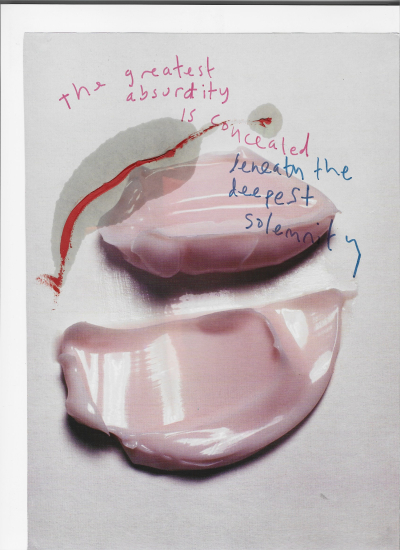 the greatest
absurdity
is concealed
beneath the
deepest
solemnity